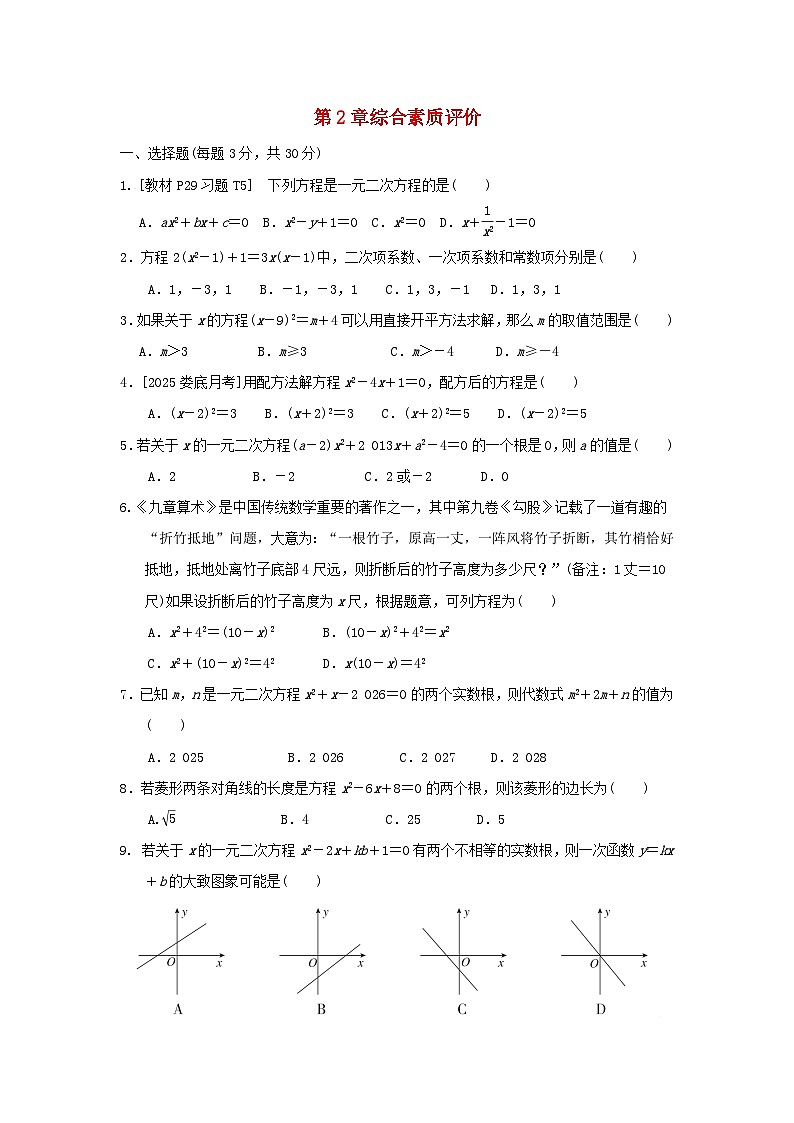 第2章综合素质评价
一、选择题(每题3分,共30分)
1.[教材P29习题T5] 下列方程是一元二次方程的是( )
A.ax²+bx+c=0 B.x²-y+1=0 C.x²=0 D.x+1/x²-1=0
2.方程2(x²-1)+1=3x(x-1)中,二次项系数、一次项系数和常数项分别是( )
A.1,-3,1 B.-1,-3,1 C.1,3,-1 D.1,3,1
3.如果关于x的方程(x-9)²=m+4可以用直接开平方法求解,那么m的取值范围是( )
A.m>3 B.m≥3 C.m>-4 D.m≥-4
4.[2025娄底月考]用配方法解方程x²-4x+1=0,配方后的方程是( )
A.(x-2)²=3 B.(x+2)²=3 C.(x+2)²=5 D.(x-2)²=5
5.若关于x的一元二次方程(a-2)x²+2 013x+a²-4=0的一个根是0,则a的值是( )
A.2 B.-2 C.2或-2 D.0
6.《九章算术》是中国传统数学重要的著作之一,其中第九卷《勾股》记载了一道有趣的
“折竹抵地”问题,大意为:“一根竹子,原高一丈,一阵风将竹子折断,其竹梢恰好
抵地,抵地处离竹子底部4尺远,则折断后的竹子高度为多少尺?”(备注:1丈=10
尺)如果设折断后的竹子高度为x尺,根据题意,可列方程为( )
A.x²+4²=(10-x)² B.(10-x)²+4²=x²
C.x²+(10-x)²=4² D.x(10-x)=4²
7.已知m,n是一元二次方程x²+x-2 026=0的两个实数根,则代数式m²+2m+n的值为
( )
A.2 025 B.2 026 C.2 027 D.2 028
8.若菱形两条对角线的长度是方程x²-6x+8=0的两个根,则该菱形的边长为( )
A.√5 B.4 C.25 D.5
9. 若关于x的一元二次方程x²-2x+kb+1=0有两个不相等的实数根,则一次函数y=kx
+b的大致图象可能是( )
y y y y
O x O x O x O x
A B C D